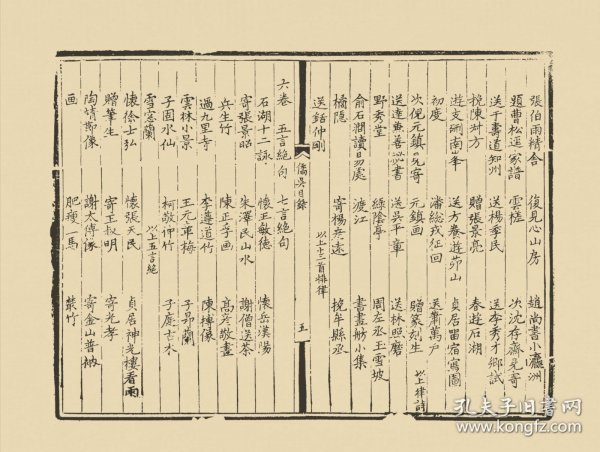 張伯雨精舍 復見心山房 趙尚書小瀛洲
題曹松巡家譜 雲槎 次沈存齋見寄
送于壽道知州 送楊季民 送李秀才鄉試
挽陳对方 贈張景亮 春遊石湖
遊支硎南峯 送方養遊茆山 貞居畱宿寫圖
初度 潘總戎征回 送蕭萬戶
次倪元鎮見寄 元鎮画 贈篆刻生 以上律詩
送達兼善祕書 送吳平章 送林照磨
野秀堂 綠陰亭 周左丞玉雪坡
俞石澗讀易處 渡江 書畫舫小集
橘隱 寄楊弃遠 挽牟縣丞
送銛仲剛 以上十三首排律
僑吳目錄 五
六卷 五言絕句 七言絕句
石湖十二詠 懷王敏德 懷岳漢陽
寄張景昭 朱澤民山水 謝僧送茶
兵生竹 陳正子画 髙彥敬畫
過九里寺 李遵道竹 陳檸像
雲林小景 王元章梅 子昻蘭
子固水仙 柯敬仲竹 子庭古木
雪窓蘭 以上五言絕
懷徐士弘 懷張天民 貞居神光樓看雨
贈華生 寄王叔明 寄光孝
陶靖節像 謝太傅像 寄金山普衲
画 肥瘦二馬 叢竹
孔夫子旧书网
www.kongfz.com